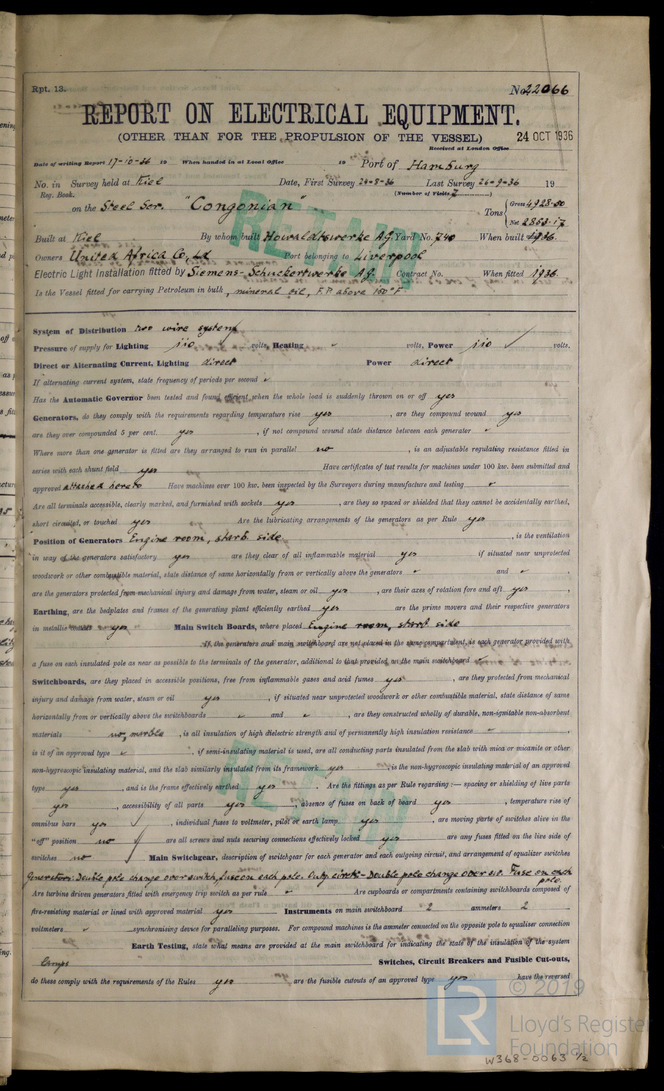 Rpt. 13.
No. 22066
REPORT ON ELECTRICAL EQUIPMENT.
(OTHER THAN FOR THE PROPULSION OF THE VESSEL)
Received at London Office 24 OCT 1936
Date of writing Report 17-10-36 19 When handed in at Local Office 19 Port of Hamburg
No. in Survey held at Kiel Date, First Survey 24-8-36 Last Survey 26-9-36 19
Reg. Book. (Number of Visits 7)
on the Steel Scr. "Congonian" Tons { Gross 4928.80
Net 2868.17
Built at Kiel By whom built Howaldtswerke A.G. Yard No. 740 When built 1936.
Owners United Africa Co. Ld Port belonging to Liverpool
Electric Light Installation fitted by Siemens-Schuckertwerke A.G. Contract No. When fitted 1936.
Is the Vessel fitted for carrying Petroleum in bulk, mineral oil, F.P. above 150°F
System of Distribution two wire system
Pressure of supply for Lighting 110 volts, Heating volts, Power 110 volts.
Direct or Alternating Current, Lighting direct Power direct
If alternating current system, state frequency of periods per second
Has the Automatic Governor been tested and found efficient when the whole load is suddenly thrown on or off yes
Generators, do they comply with the requirements regarding temperature rise yes, are they compound wound yes
are they over compounded 5 per cent. yes, if not compound wound state distance between each generator
Where more than one generator is fitted are they arranged to run in parallel no, is an adjustable regulating resistance fitted in
series with each shunt field yes Have certificates of test results for machines under 100 kw. been submitted and
approved attached hereto Have machines over 100 kw. been inspected by the Surveyors during manufacture and testing
Are all terminals accessible, clearly marked, and furnished with sockets yes, are they so spaced or shielded that they cannot be accidentally earthed,
short circuited, or touched yes Are the lubricating arrangements of the generators as per Rule yes
Position of Generators Engine room, starb. side, is the ventilation
in way of the generators satisfactory yes are they clear of all inflammable material yes if situated near unprotected
woodwork or other combustible material, state distance of same horizontally from or vertically above the generators and
are the generators protected from mechanical injury and damage from water, steam or oil yes, are their axes of rotation fore and aft yes
Earthing, are the bedplates and frames of the generating plant efficiently earthed yes are the prime movers and their respective generators
in metallic contact yes Main Switch Boards, where placed Engine room, starb side
If the generators and main switchboard are not placed in the same compartment, is each generator provided with
a fuse on each insulated pole as near as possible to the terminals of the generator, additional to that provided on the main switchboard
Switchboards, are they placed in accessible positions, free from inflammable gases and acid fumes yes, are they protected from mechanical
injury and damage from water, steam or oil yes, if situated near unprotected woodwork or other combustible material, state distance of same
horizontally from or vertically above the switchboards and, are they constructed wholly of durable, non-ignitable non-absorbent
materials no, marble, is all insulation of high dielectric strength and of permanently high insulation resistance
is it of an approved type, if semi-insulating material is used, are all conducting parts insulated from the slab with mica or micanite or other
non-hygroscopic insulating material, and the slab similarly insulated from its framework yes, is the non-hygroscopic insulating material of an approved
type yes, and is the frame effectively earthed yes. Are the fittings as per Rule regarding :— spacing or shielding of live parts
yes, accessibility of all parts yes, absence of fuses on back of board yes, temperature rise of
omnibus bars yes, individual fuses to voltmeter, pilot or earth lamp yes, are moving parts of switches alive in the
"off" position no are all screws and nuts securing connections effectively locked yes are any fuses fitted on the live side of
switches no Main Switchgear, description of switchgear for each generator and each outgoing circuit, and arrangement of equalizer switches
Generators: Double pole change over switch, fuse on each pole. Outg circts - Double pole change over sw. Fuse on each pole
Are turbine driven generators fitted with emergency trip switch as per rule Are cupboards or compartments containing switchboards composed of
fire-resisting material or lined with approved material yes Instruments on main switchboard 2 ammeters 2
voltmeters synchronising device for paralleling purposes. For compound machines is the ammeter connected on the opposite pole to equaliser connection
Earth Testing, state what means are provided at the main switchboard for indicating the state of the insulation of the system
Lamps Switches, Circuit Breakers and Fusible Cut-outs,
do these comply with the requirements of the Rules yes are the fusible cutouts of an approved type yes have the reversed
RETAIN
RETAIN
© 2019
LR Lloyd's Register
Foundation
W368-0063 1/2